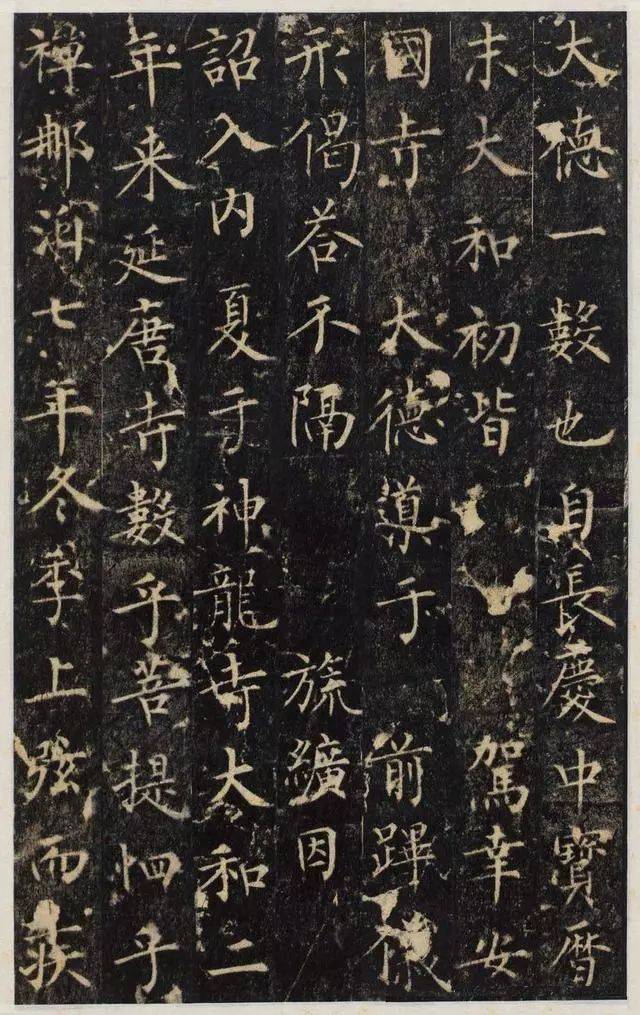 大德一數也自長慶中寶曆
末大和初皆 駕幸安
國寺 大德導于 前蹕儀
形偈荅不隔 旒纊因
詔入内夏于神龍寺大和二
年来延唐寺數乎菩提恤乎
禅郍洎七年冬季上弦而疾